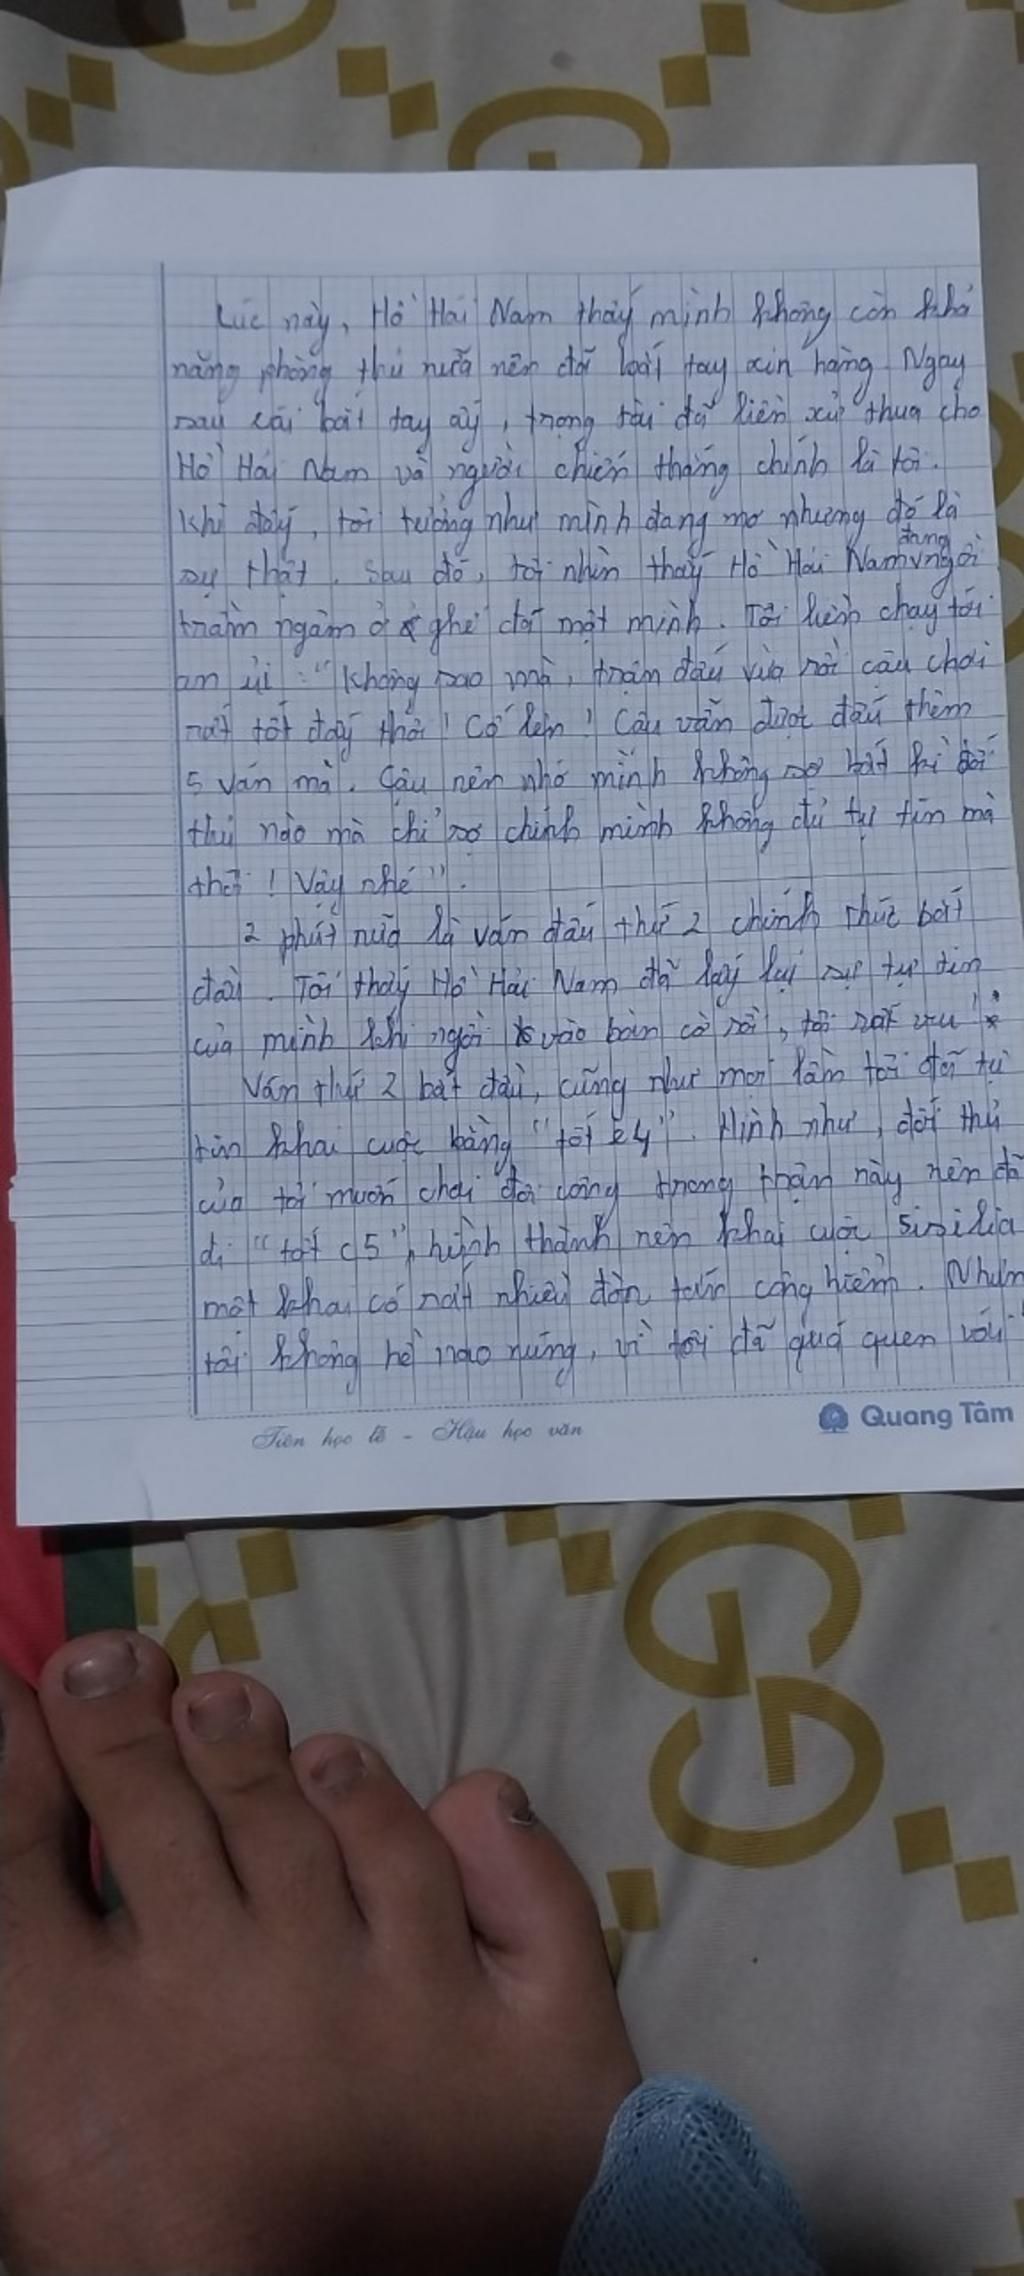 Lúc này, Hồ Hải Nam thấy mình không còn khả
năng phòng thủ nữa nên đã bắt tay xin hàng. Ngay
sau cái bắt tay ấy, trọng tài đã liền xử thua cho
Hồ Hải Nam và người chiến thắng chính là tôi.
Khi đấy, tôi tưởng như mình đang mơ nhưng đó là
sự thật. Sau đó, tôi nhìn thấy Hồ Hải Nam đang ngồi
trầm ngâm ở ghế đá một mình. Tôi liền chạy tới
an ủi: "Không sao mà, trận đấu vừa rồi cậu chơi
rất tốt đấy thôi! Cố lên! Cậu vẫn được đấu thêm
5 ván mà. Cậu nên nhớ mình không sợ bất kì đối
thủ nào mà chỉ sợ chính mình không đủ tự tin mà
thôi! Vậy nhé".
2 phút nữa là ván đấu thứ 2 chính thức bắt
đầu. Tôi thấy Hồ Hải Nam đã lấy lại sự tự tin
của mình khi ngồi vào bàn cờ rồi, tôi rất vui!
Ván thứ 2 bắt đầu, cũng như mọi lần tôi đã tự
tin khai cuộc bằng "tốt e4". Hình như, đối thủ
của tôi muốn chơi đôi công trong trận này nên đã
đi "tốt c5", hình thành nên khai cuộc Sisilia
một khai có rất nhiều đòn tấn công hiểm. Nhưn
tôi không hề nao núng, vì tôi đã quá quen với
Tiên học lễ - Hậu học văn
Quang Tâm